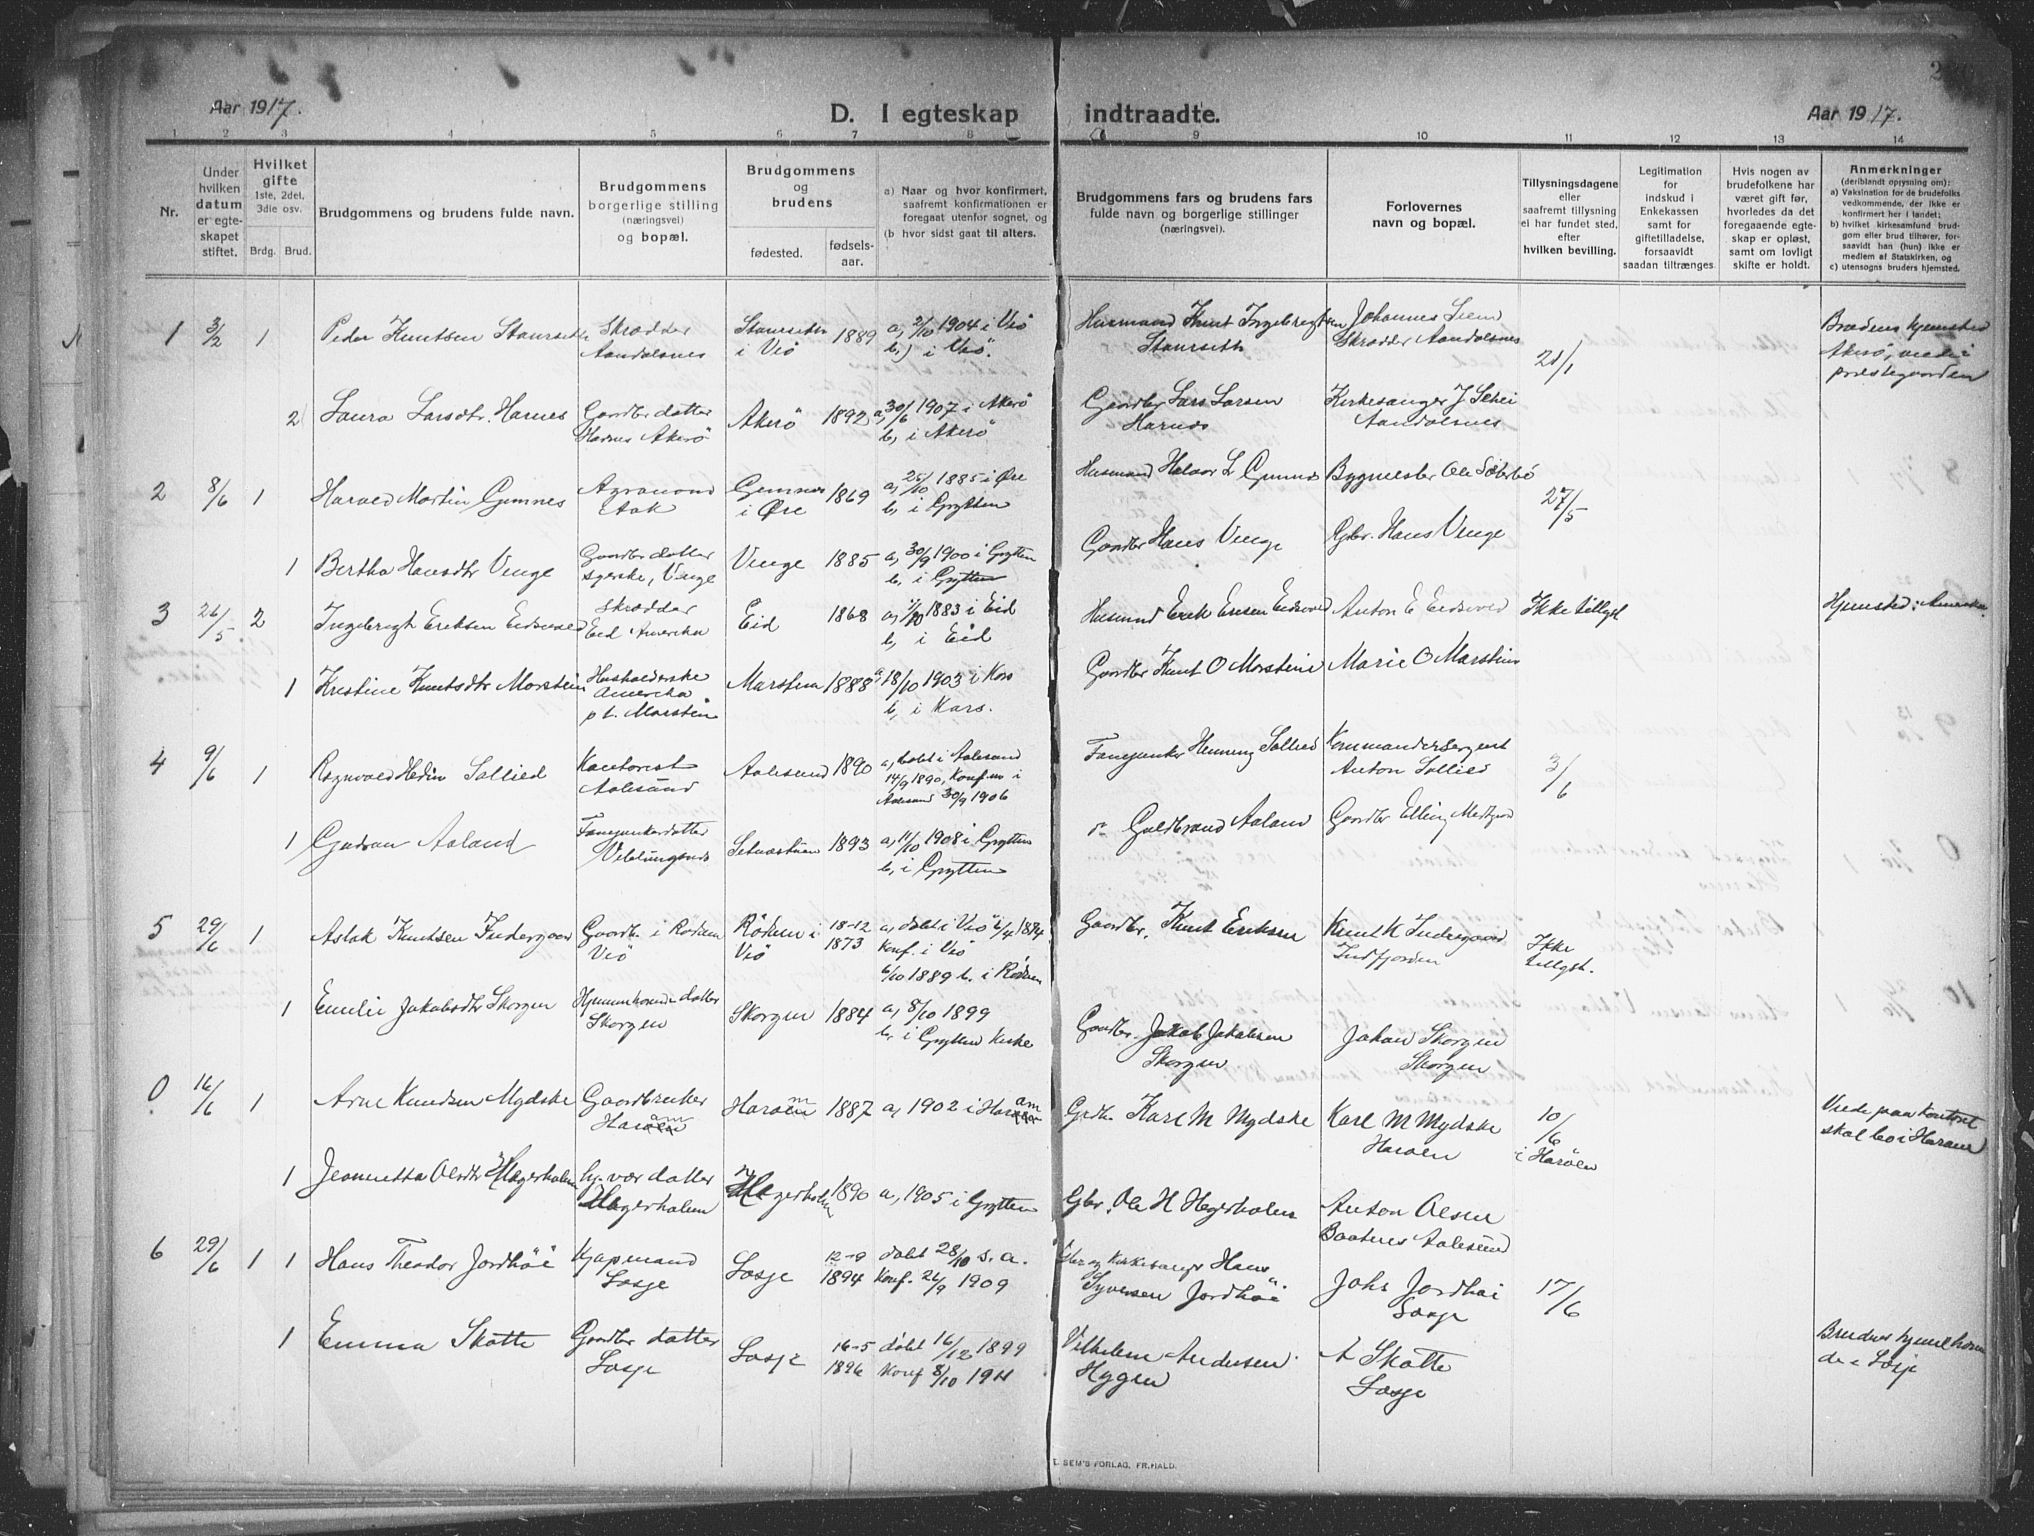 Aar 1917.
D. I egteskap indtraadte.
Aar 1917.
1 2 3 4 5 6 7 8 9 10 11 12 13 14
Nr.
Under
hvilken
datum
er egte-
skapet
stiftet.
Hvilket
gifte
1ste, 2det,
3die osv.
Brdg. Brud.
Brudgommens og brudens fulde navn.
Brudgommens
borgerlige stilling
(næringsvei)
og bopæl.
Brudgommens
og
brudens
fødested.
fødsels-
aar.
a) Naar og hvor konfirmert,
saafremt konfirmationen er
foregaat utenfor sognet, og
(b hvor sidst gaat til alters.
Brudgommens fars og brudens fars
fulde navn og borgerlige stillinger
(næringsvei).
Forlovernes
navn og bopæl.
Tillysningsdagene
eller
saafremt tillysning
ei har fundet sted,
efter
hvilken bevilling.
Legitimation
for
indskud i
Enkekassen
samt for
giftetilladelse,
forsaavidt
saadan tiltrænges.
Hvis nogen av
brudefolkene har
været gift før,
hvorledes da det
foregaaende egte-
skap er opløst,
samt om lovligt
skifte er holdt.
Anmerkninger
(deriblandt oplysning om):
a) Vaksination for de brudefolks
vedkommende, der ikke er
konfirmert her i landet;
b) hvilket kirkesamfund brud-
gom eller brud tilhører, for-
saavidt han (hun) ikke er
medlem af Statskirken, og
c) utensogns bruders hjemsted.
1 3/2 1 Peder Knutsen Staurseth
Skrædder
Aandalsnes
Staurseth
i Veö
1889
a, 2/10 1904 i Veö
b,) i Veö.
Husmand Knut Ingebrigtsen
Staurseth
Johannes
Skrædder Aandalsnes
21/1
Brudens hjemsted
Akerö, viede i
præstegaarden
2 Laura Larsdtr. Harnes
Gaardbr datter
Harnes Akerö
Akerö
1892
a, 30/6 1907 i Akerö
b, i Akerö
Gaardbr Lars Larsen
Harnes
Kirkesanger J
Aandalsnes
2 8/6 1 Harald Martin Gumnes
Agronom
Aak
Gumnes
i Øre
1869
a, 25/10 1885 i Øre
b, i Grytten
Husmand Halvor L Gumnes
Ole Sæterbö
27/5
1 Bertha Hansdtr Venge
Gaardbr datter
Venge
Venge
1885
a, 30/9 1900 i Grytten
b, i Grytten
Gaardbr Hans Venge
Gbr. Hans Venge
3 26/5 2 Ingebrigt Eriksen Eidsvold
Skrædder
Eid Amerika
Eid
1868
a, 7/10 1883 i Eid
b, i Eid
Husmand Erik Ersen Eidsvold
Anton E Eidsvold
Ikke tillyst
Hjemsted: Amerika
1 Kristine Knutsdtr Morstein
Husholderske
Amerika
p t. Marstein
Marstein
1888
a 18/10 1903 i Kors
b, i Kors.
Gaardbr Knut O Morstein
Marie O Marstein
4 9/6 1 Ragnvald Hedin Sollied
Kontorist
Aalesund
Aalesund
1890
a, döbt i Aalesund
14/9 1890, Konf. i
Aalesund 30/9 1906
Fanejunker Henning Sollied
Kommandersergent
Anton Sollied
3/6
1 Gudrun Aaland
Fanejunkerdatter
Veblungsnes
Setnesmoen
1893
a, 11/10 1908 i Grytten
b, i Grytten
Guldbrand Aaland
Gaardbr Elling
5 29/6 1 Aslak Knutsen Indergaard
Gaardbr. i Rödven
Veö
Rödven i
Veö
18-12
1873
a, döbt i Veö 6/4 1874
Konf. i Veö
6/10 1889 b. i Rödven
Gaardbr. Knut Eriksen
Knut K Indergaard
Indfjorden
Ikke
tillyst.
1 Emilie Jakobsdtr Skorgen
Hjemmeværende datter
Skorgen
Skorgen
1884
a, 8/10 1899
b, i Grytten Kirke
Gaardbr. Jakob Jakobsen
Skorgen
Johan Skorgen
Skorgen
0. 16/6 1 Arne Knudsen Mydske
Gaardbruker
Haram
Haröen
1887
a, 1902 i Haram
Grdbr. Karl M Mydske
Karl M Mydske
Haröen
10/6
i Haröen
Viede paa kontoret
skal bo i Haram
1 Jeanetta Olsdtr Hagerholm
hj.vær datter
Hagerholm
Hagerholm
1890
a, 1905 i Grytten
Gbr. Ole H Hegerholm
Anton Olsen
Aalesund
6 29/6 1 1 Hans Theodor Jordhöi
Kjøpmand
Lesje
Lesje
12-9
1894
döbt 28/10 s. a.
Konf. 26/9 1909
Gbr og Kirkesanger Hans
Syversen Jordhöi
Johs Jordhöi
Lesje
17/6
1 Emma Skotte
Gaardbr datter
Lesje
Lesje
16-5
1896
döbt 16/12 1899
Konf 8/10 1911
Vilhelm Andersen
Hygen
A Skotte
Lesje
Brudens hjem
Lesje
E. SEM'S FORLAG, FR.HALD.